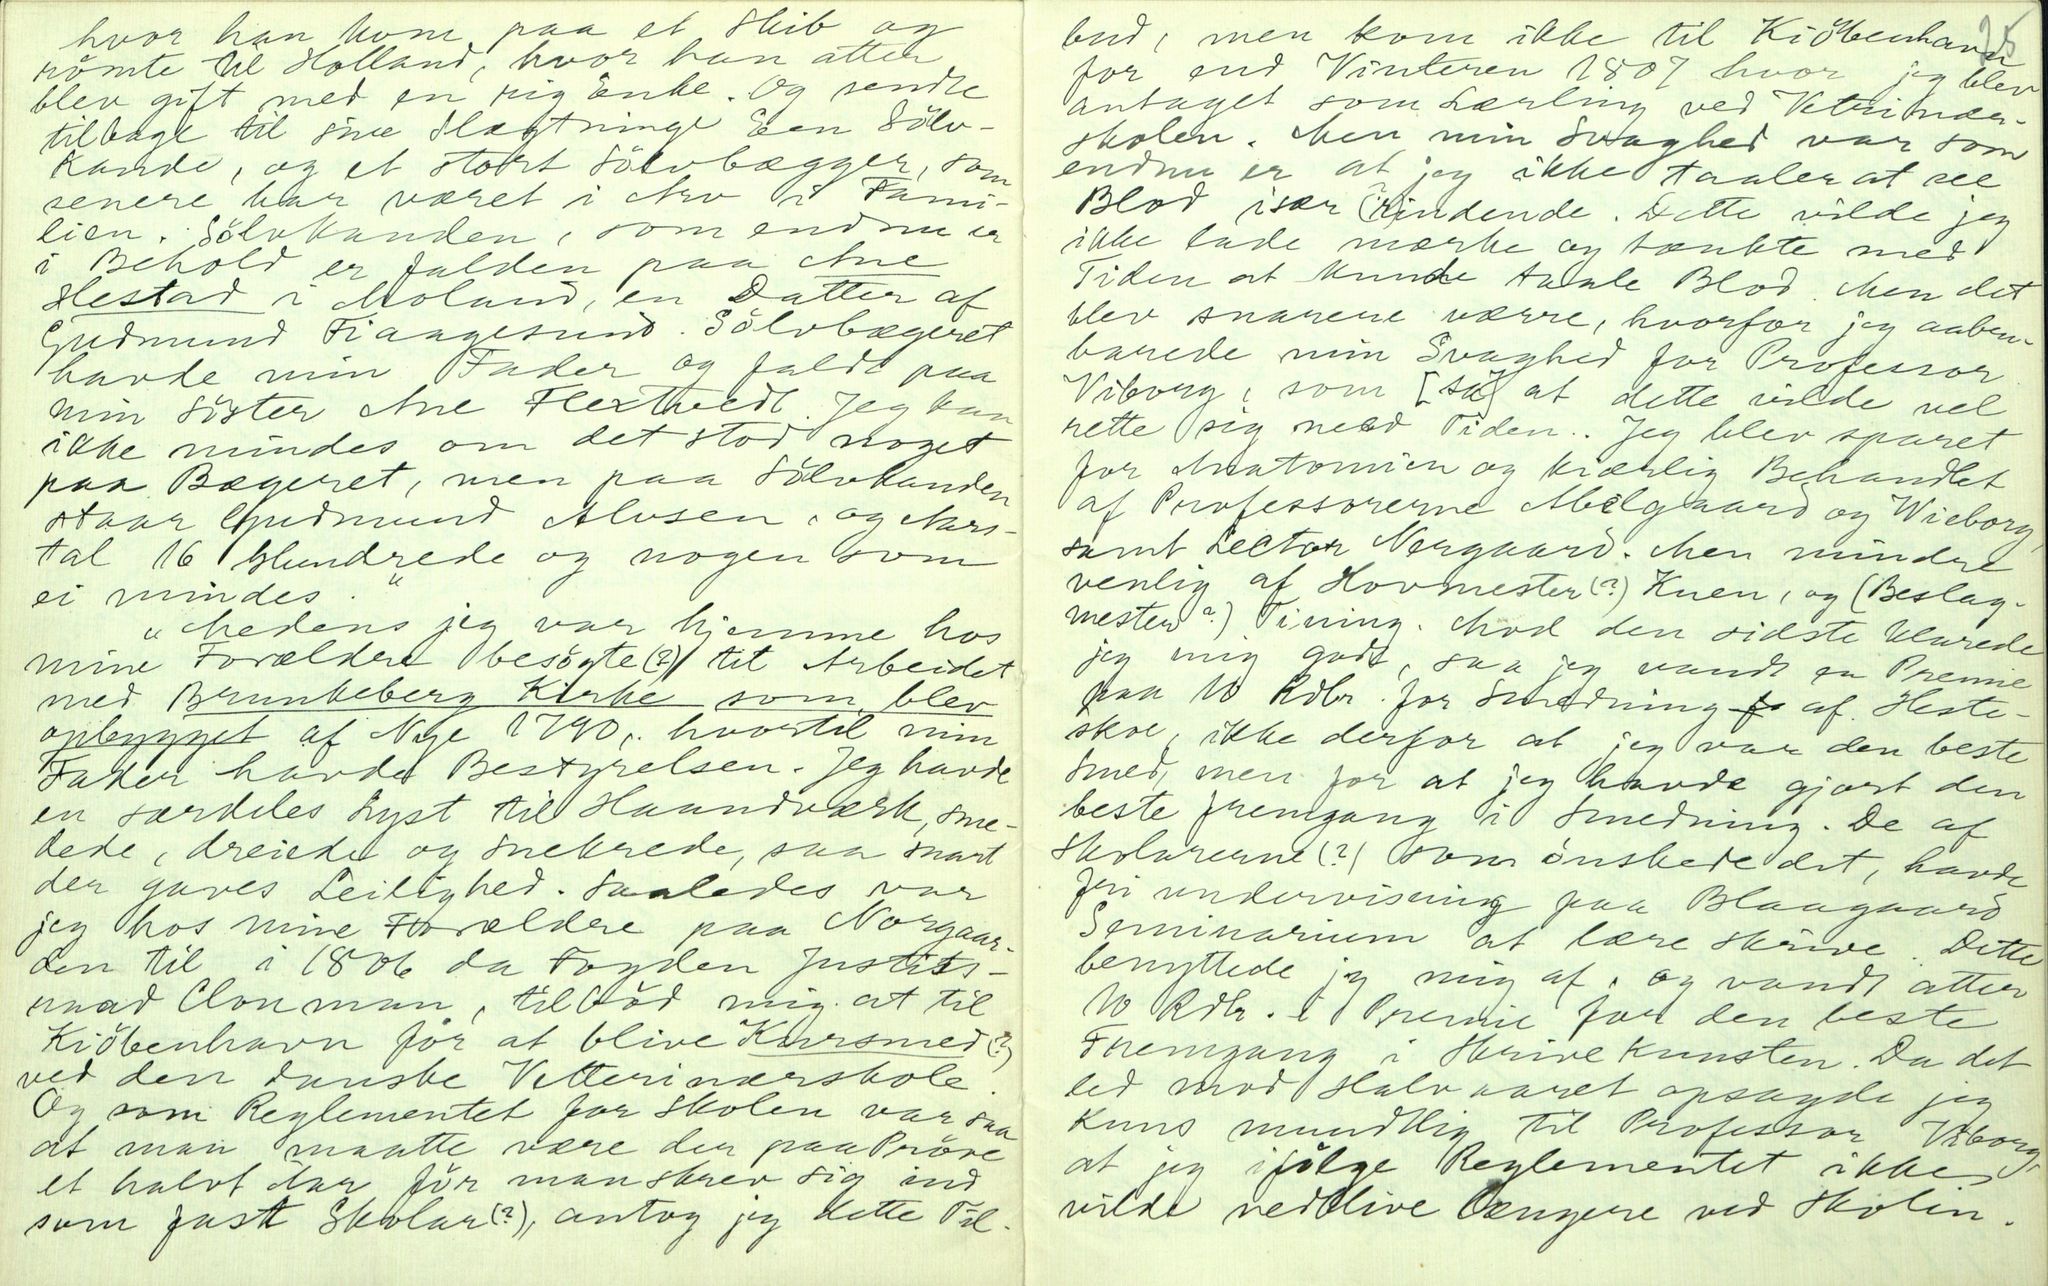 hvor han kom paa et Skib og
römte til Holland, hvor han atter
blev gift med en rig Enke. Og sendte
tilbage til sine Slægtninge Een Sölv-
kande, og et stort Sölvbægger, som
senere har været i Arv i Fami-
lien. Sölvkanden, som endnu er
i Behold er falden paa Ane
Hestad i Moland, en Datter af
Gudmund Fiaagesund. Sölvbægeret
havde min Fader og faldt paa
min Söster Ane Flextvedt. Jeg kan
ikke mindes om det stod noget
paa Bægeret, men paa Sölvkanden
staar Gudmund Alvsen, og Aars-
tal 16 Hundrede og nogen som
ei mindes."
"Medens jeg var hjemme hos
mine Forældre besögte (?) til Arbeidet
med Brunkeberg Kirke som blev
opbygget af Nye 1790, hvortil min
Fader havde Bestyrelsen. Jeg havde
en særdeles Lyst til Haandværk, sme-
dede, dreiede og snekrede, saa snart
der gaves Leilighed. Saaledes var
jeg hos mine Forældre paa Norgaar-
den til i 1806 da Fogden Justits-
raad Clouman, tilböd mig at til
Kiöbenhavn för at blive Kursmed (?)
ved den danske Vetterinærskole.
Og som Reglementet for Skolen var saa
at man maatte være der paa Pröve
et halvt Aar för man skrev sig ind
som fast Skolar (?), antog jeg dette Til-
bud, men kom ikke til Kiöbenhavn
for end Vinteren 1807 hvor jeg blev
antaget som Lærling ved Vetrinær-
skolen. Men min Svaghed var som
endnu er at jeg ikke taaler at see
Blod især (?) rindende. Dette vilde jeg
ikke lade mærke og tænkte med
Tiden at kunde taale Blod. Men det
blev snarere værre, hvorfor jeg aaben-
barede min Svaghed for Professor
Viborg, som [sa] at dette vilde vel
rette sig med Tiden. Jeg blev sparet
for Anatomien og kiærlig Behandlet
af Professorerne Mølgaard og Wieborg,
samt Lector Nørgaard. Men mindre
venlig af Hovmester (?) Knen, og (Beslag-
mester?) Tining. Mod den sidste klarede
jeg mig godt, saa jeg vandt en Premie
paa 10 Rdlr. for Smedning af Heste-
skoe, ikke derfor at jeg var den beste
Smed, men for at jeg havde gjort den
beste fremgang i Smedning. De af
Skolarerne (?) som önskede det, havde
fri undervisning paa Blaagaard
Seminarium at lære skrive. Dette
benyttede jeg mig af, og vandt atter
10 Rdlr. i Premie for den beste
Fremgang i Skrive Kunsten. Da det
led mod Halvaaret opsagde jeg
kuns mundtlig til Professor Viborg,
at jeg ifölge Reglementet ikke
vilde vedblive længere ved Skolen.